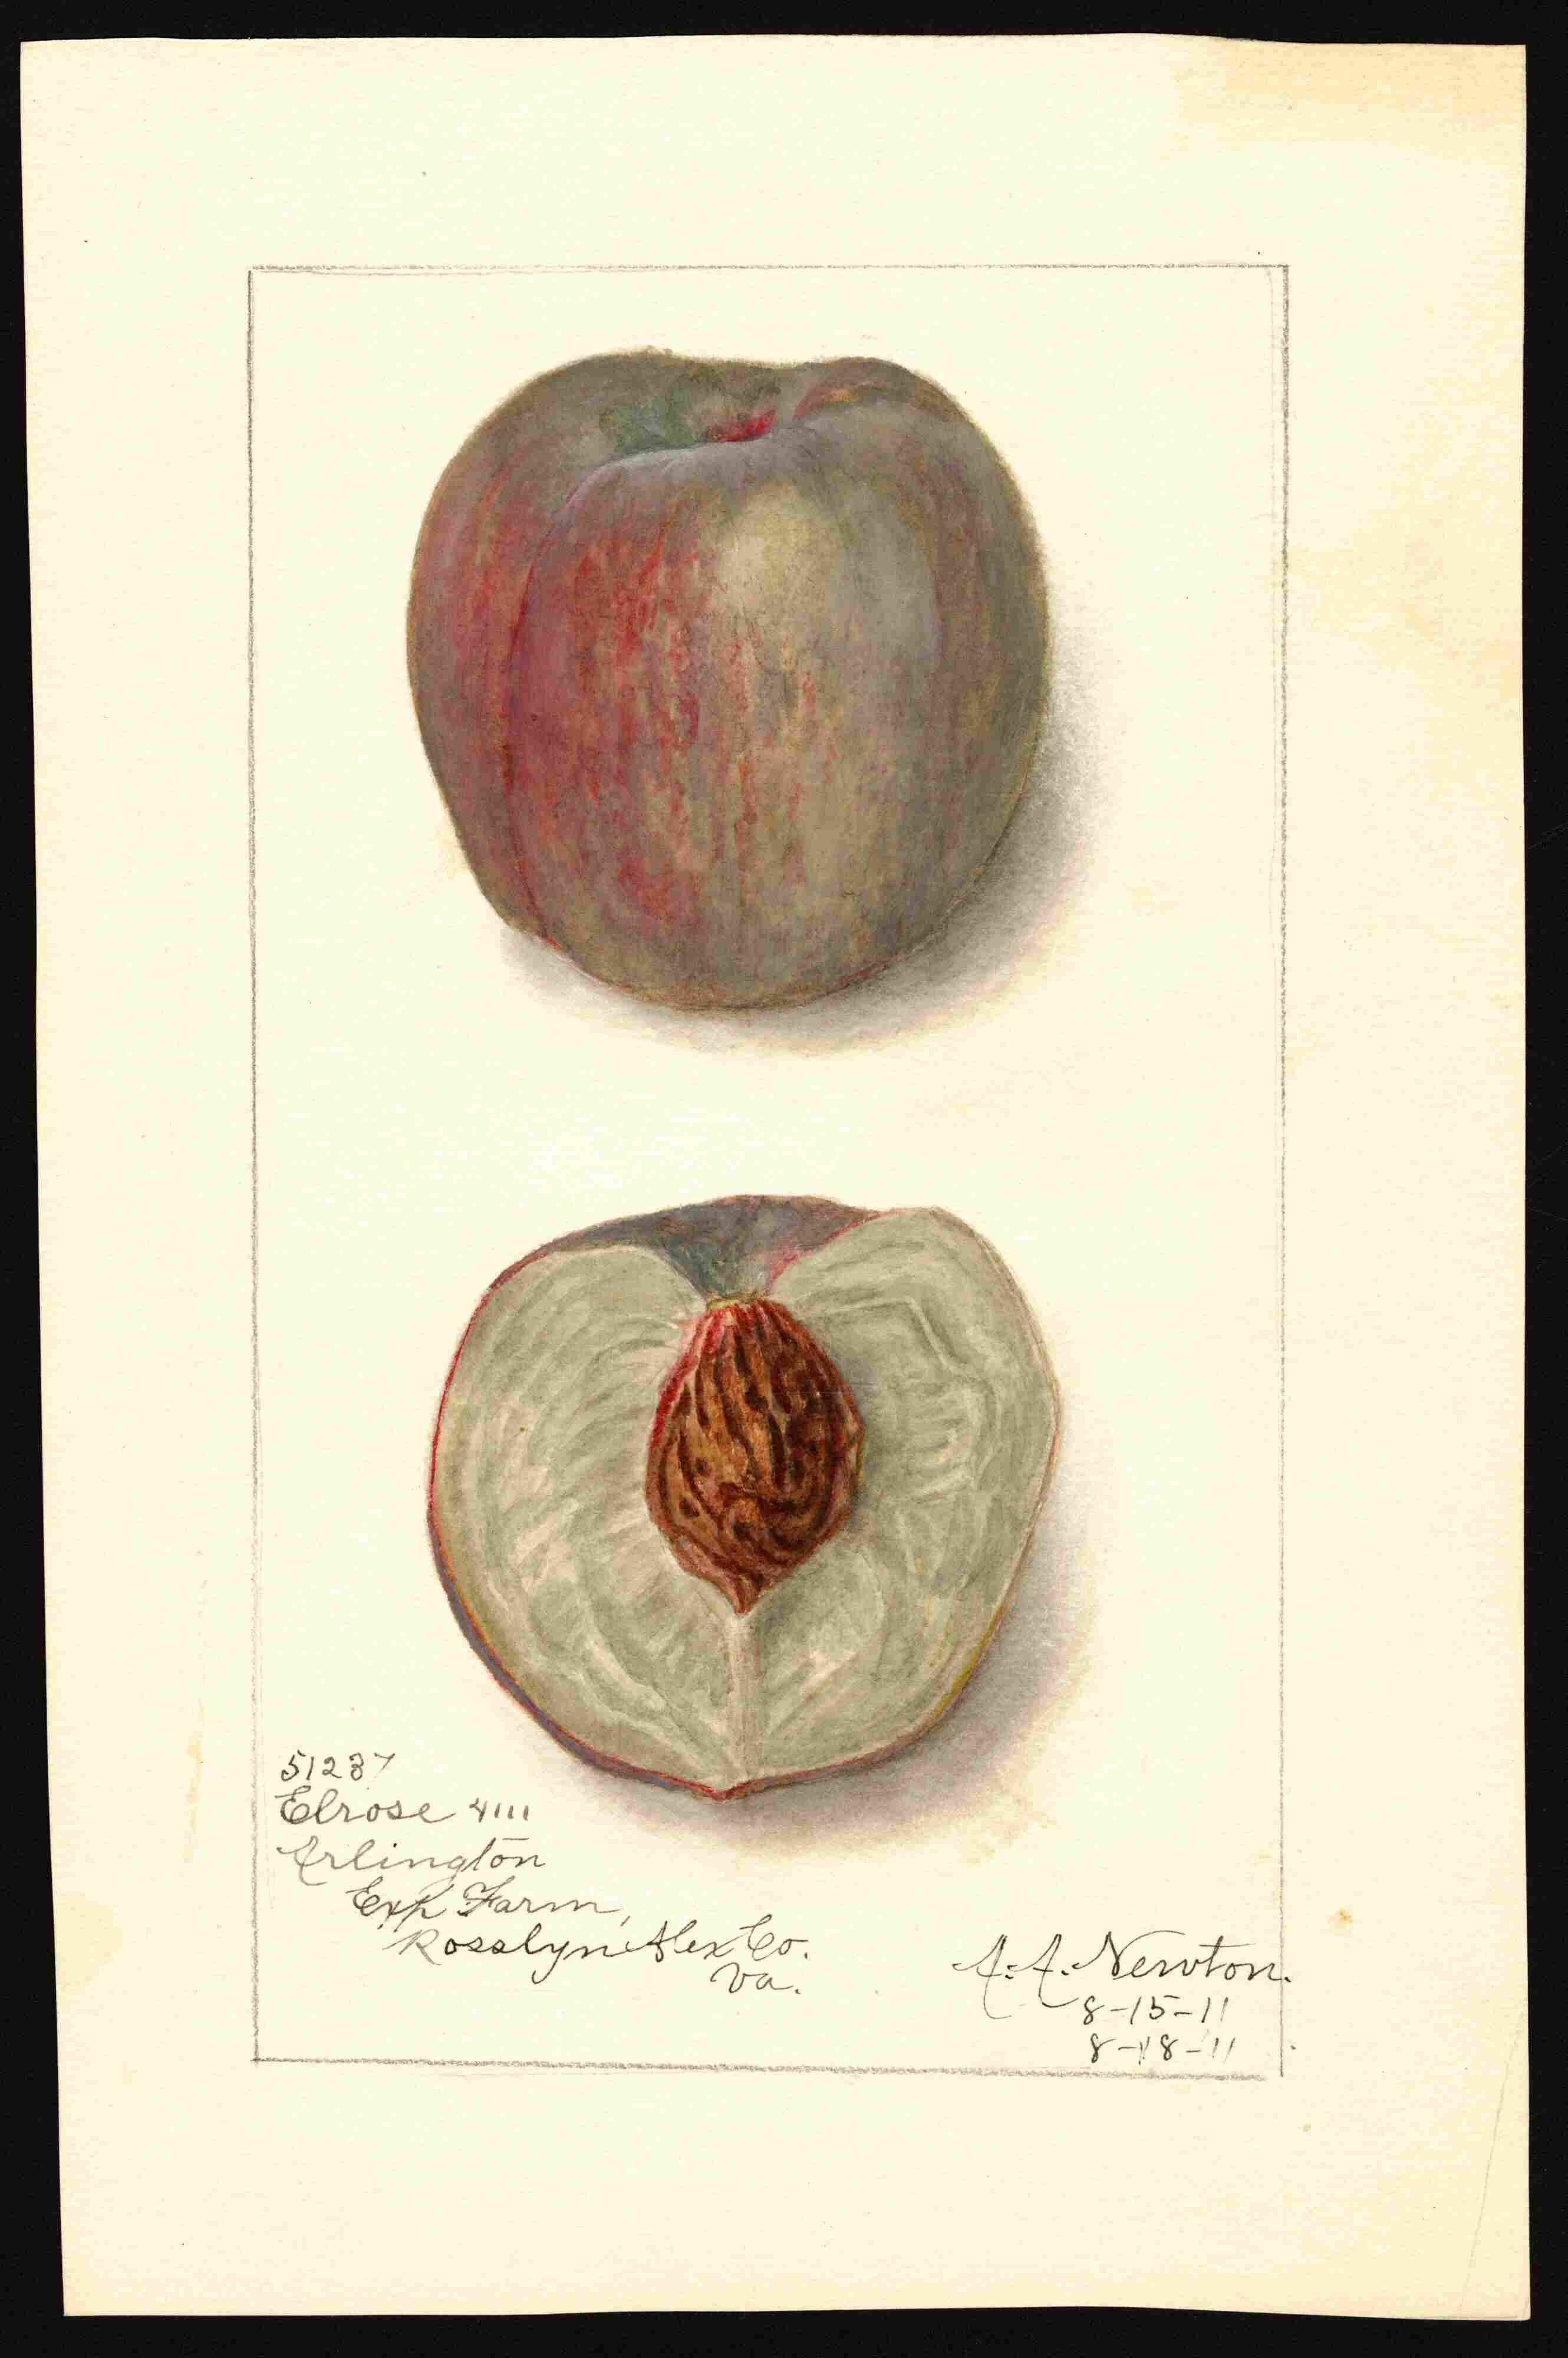 51237
Elrose 4111
Arlington
Exp Farm,
Rosslyn Alex Co.
Va.
A. A. Newton.
8-15-11
8-18-11